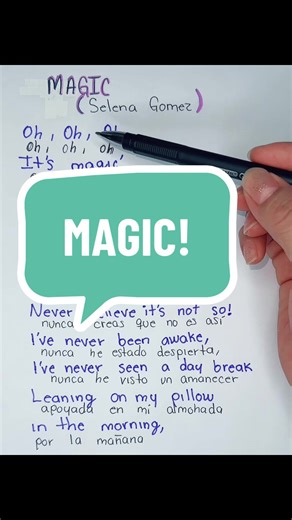 MAGIC
(Selena Gomez)
Oh, Oh,
oh, oh, oh
It's magic
MAGIC!
Never it's not so!
nunca creas que no es así
I've never been awake,
nunca he estado despierta,
I've never seen a day break
nunca he visto un amanecer
Leaning on my pillow
apoyada en mi almohada
in the morning,
por la mañana